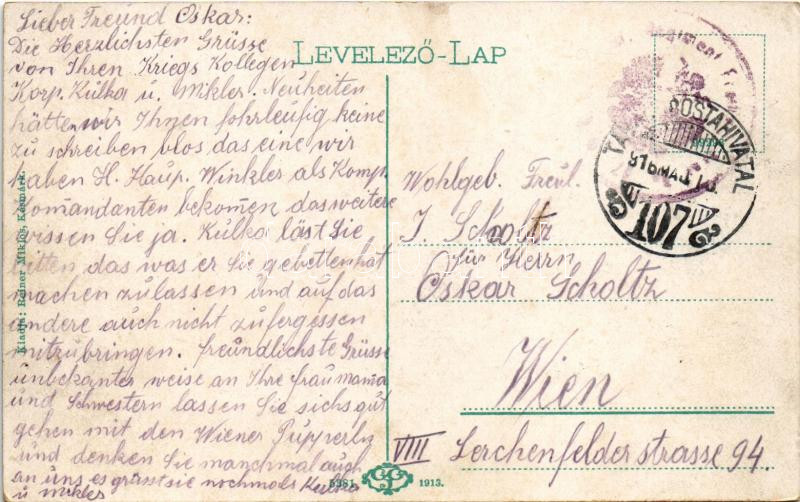 Lieber Freund Oskar:
Die Herzlichsten Grüsse
von Ihren Kriegs Kollegen
Korp. Kulka u. Mikler. Neuheiten
hätten wir Ihnen fohrleufig keine
zu schreiben blos das eine wir
haben H. Haup. Winkler als Komp.
Komandanten bekomen das weitere
wissen Sie ja. Kulka läst Sie
bitten das was er Sie gebetten hat
machen zulassen und auf das
andere auch nicht zufergessen
mitzubringen. freundlichste Grüsse
unbekanter weise an Ihre frau mama
und Schwestern lassen Sie sichs gut
gehen mit den Wiener Pupperln
und denken Sie manchmal auch
an uns es grüsst sie nochmals Kulka
u Mikler
Kiadja: Reiner Miklós, Késmárk.
LEVELEZŐ-LAP
5381 1913.
TÁBORI POSTAHIVATAL
107
Wohlgeb. Freul.
J. Scholtz
für Herrn
Oskar Scholtz
Wien
VIII Lerchenfelderstrasse 94.